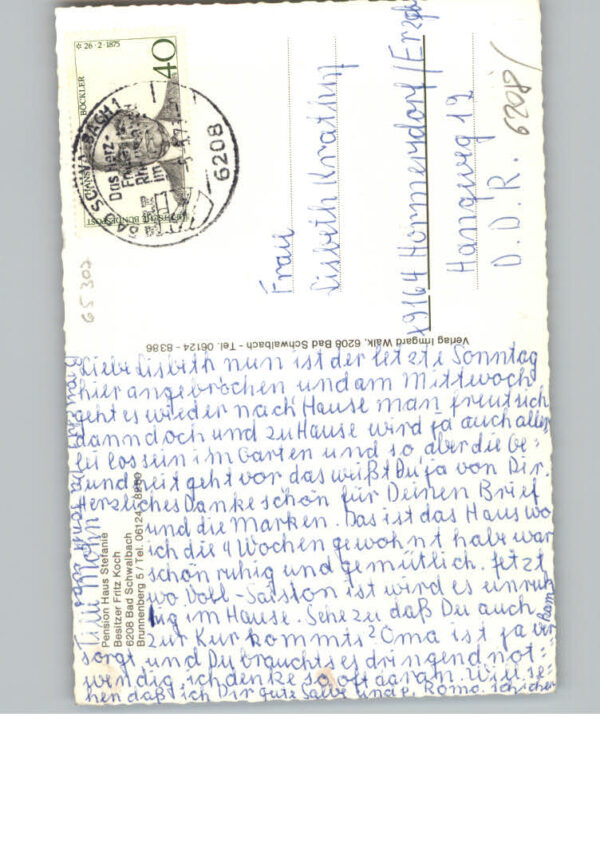 * 26·2·1875
40
HANS BÖCKLER
DEUTSCHE BUNDESPOST
BAD SCHWALBACH 1
Das Herz-
im
6208
Frau
Lisbeth
Hormersdorf / Erzgb
Hangweg 12
D.D.R.
65 302
Verlag Irmgard Walk, 6208 Bad Schwalbach - Tel. 06124 - 8386
Pension Haus Stefanie
Besitzer Fritz Koch
6208 Bad Schwalbach
Brunnenberg 5 / Tel. 06124
Liebe Lisbeth nun ist der letzte Sonntag
hier angebrochen und am Mittwoch
geht es wieder nach Hause man freut sich
dann doch und zu Hause wird ja auch aller
lei los sein im Garten und so aber die Ge=
sundheit geht vor das weißt Du ja von Dir.
Herzliches Dankeschön für Deinen Brief
und die Marken. Das ist das Haus wo
ich die 4 Wochen gewohnt habe war
schön ruhig und gemütlich. Jetzt
wo Voll-Saison ist wird es unruh
ig im Hause. Sehe zu daß Du auch
zur Kur kommts Oma ist ja ver
sorgt und Du brauchts es dringend not=
wendig, ich denke so oft daran. Will se=
hen daß ich Dir gute Salbe und